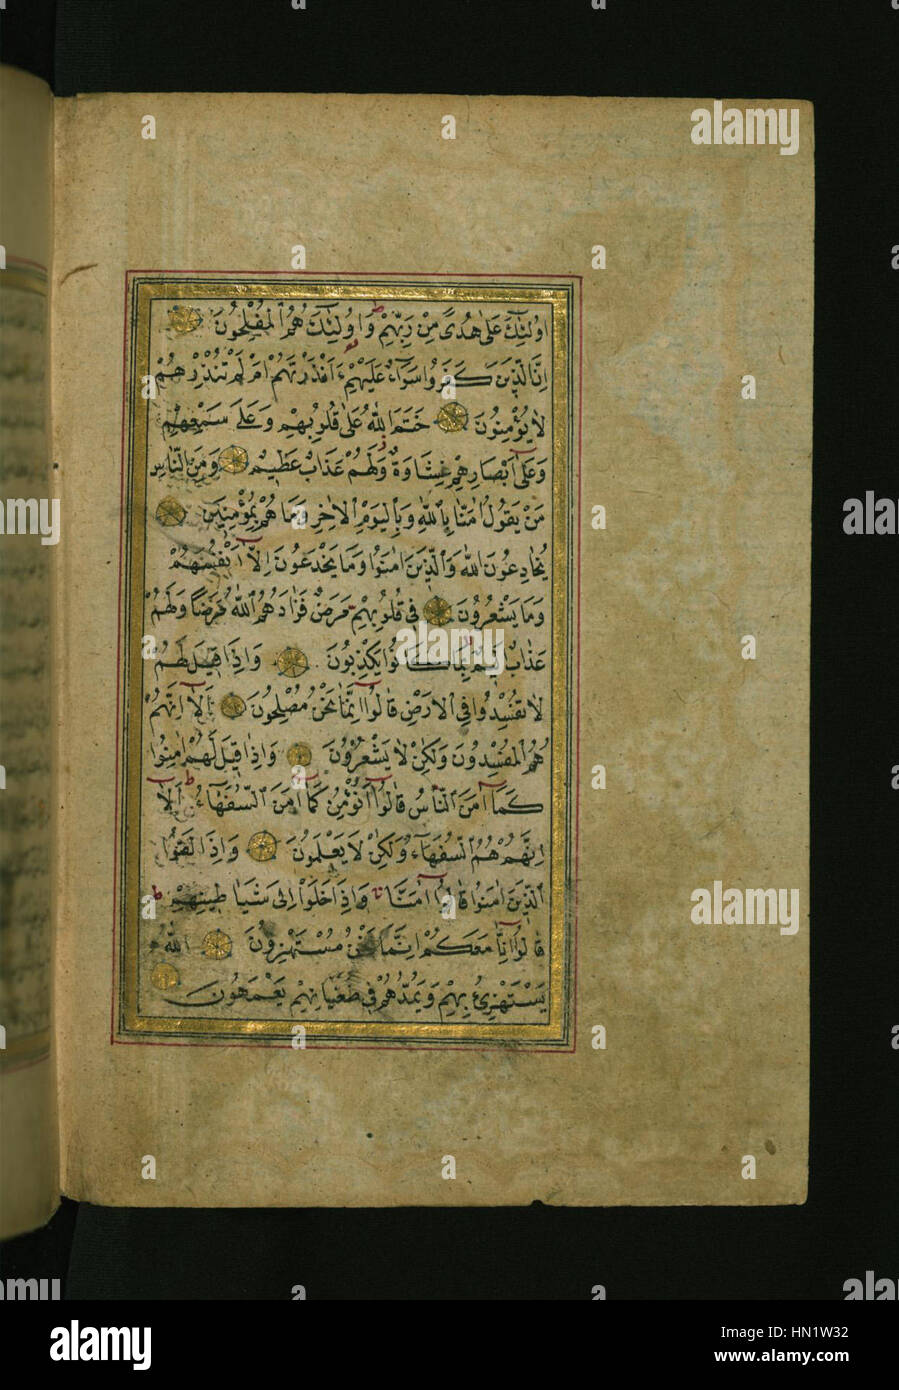 اُولٰٓئِكَ عَلٰى هُدًى مِنْ رَبِّهِمْ وَاُولٰٓئِكَ هُمُ الْمُفْلِحُونَ
اِنَّ الَّذِينَ كَفَرُوا سَوَٓاءٌ عَلَيْهِمْ ءَاَنْذَرْتَهُمْ اَمْ لَمْ تُنْذِرْهُمْ
لَا يُؤْمِنُونَ خَتَمَ اللّٰهُ عَلٰى قُلُوبِهِمْ وَعَلٰى سَمْعِهِمْ
وَعَلٰٓى اَبْصَارِهِمْ غِشَاوَةٌ وَلَهُمْ عَذَابٌ عَظِيمٌ وَمِنَ النَّاسِ
مَنْ يَقُولُ اٰمَنَّا بِاللّٰهِ وَبِالْيَوْمِ الْاٰخِرِ وَمَا هُمْ بِمُؤْمِنِينَ
يُخَادِعُونَ اللّٰهَ وَالَّذِينَ اٰمَنُوا وَمَا يَخْدَعُونَ اِلَّٓا اَنْفُسَهُمْ
وَمَا يَشْعُرُونَ فِي قُلُوبِهِمْ مَرَضٌ فَزَادَهُمُ اللّٰهُ مَرَضًا وَلَهُمْ
عَذَابٌ اَلِيمٌ بِمَا كَانُوا يَكْذِبُونَ وَاِذَا قِيلَ لَهُمْ
لَا تُفْسِدُوا فِي الْاَرْضِ قَالُٓوا اِنَّمَا نَحْنُ مُصْلِحُونَ اَلَٓا اِنَّهُمْ
هُمُ الْمُفْسِدُونَ وَلٰكِنْ لَا يَشْعُرُونَ وَاِذَا قِيلَ لَهُمْ اٰمِنُوا
كَمَٓا اٰمَنَ النَّاسُ قَالُٓوا اَنُؤْمِنُ كَمَٓا اٰمَنَ السُّفَهَٓاءُ اَلَٓا
اِنَّهُمْ هُمُ السُّفَهَٓاءُ وَلٰكِنْ لَا يَعْلَمُونَ وَاِذَا لَقُوا
الَّذِينَ اٰمَنُوا قَالُٓوا اٰمَنَّا وَاِذَا خَلَوْا اِلٰى شَيَاطِينِهِمْ
قَالُٓوا اِنَّا مَعَكُمْ اِنَّمَا نَحْنُ مُسْتَهْزِؤُنَ اَللّٰهُ
يَسْتَهْزِئُ بِهِمْ وَيَمُدُّهُمْ فِي طُغْيَانِهِمْ يَعْمَهُونَ
alamy
alamy stock photo
HN1W32
www.alamy.com